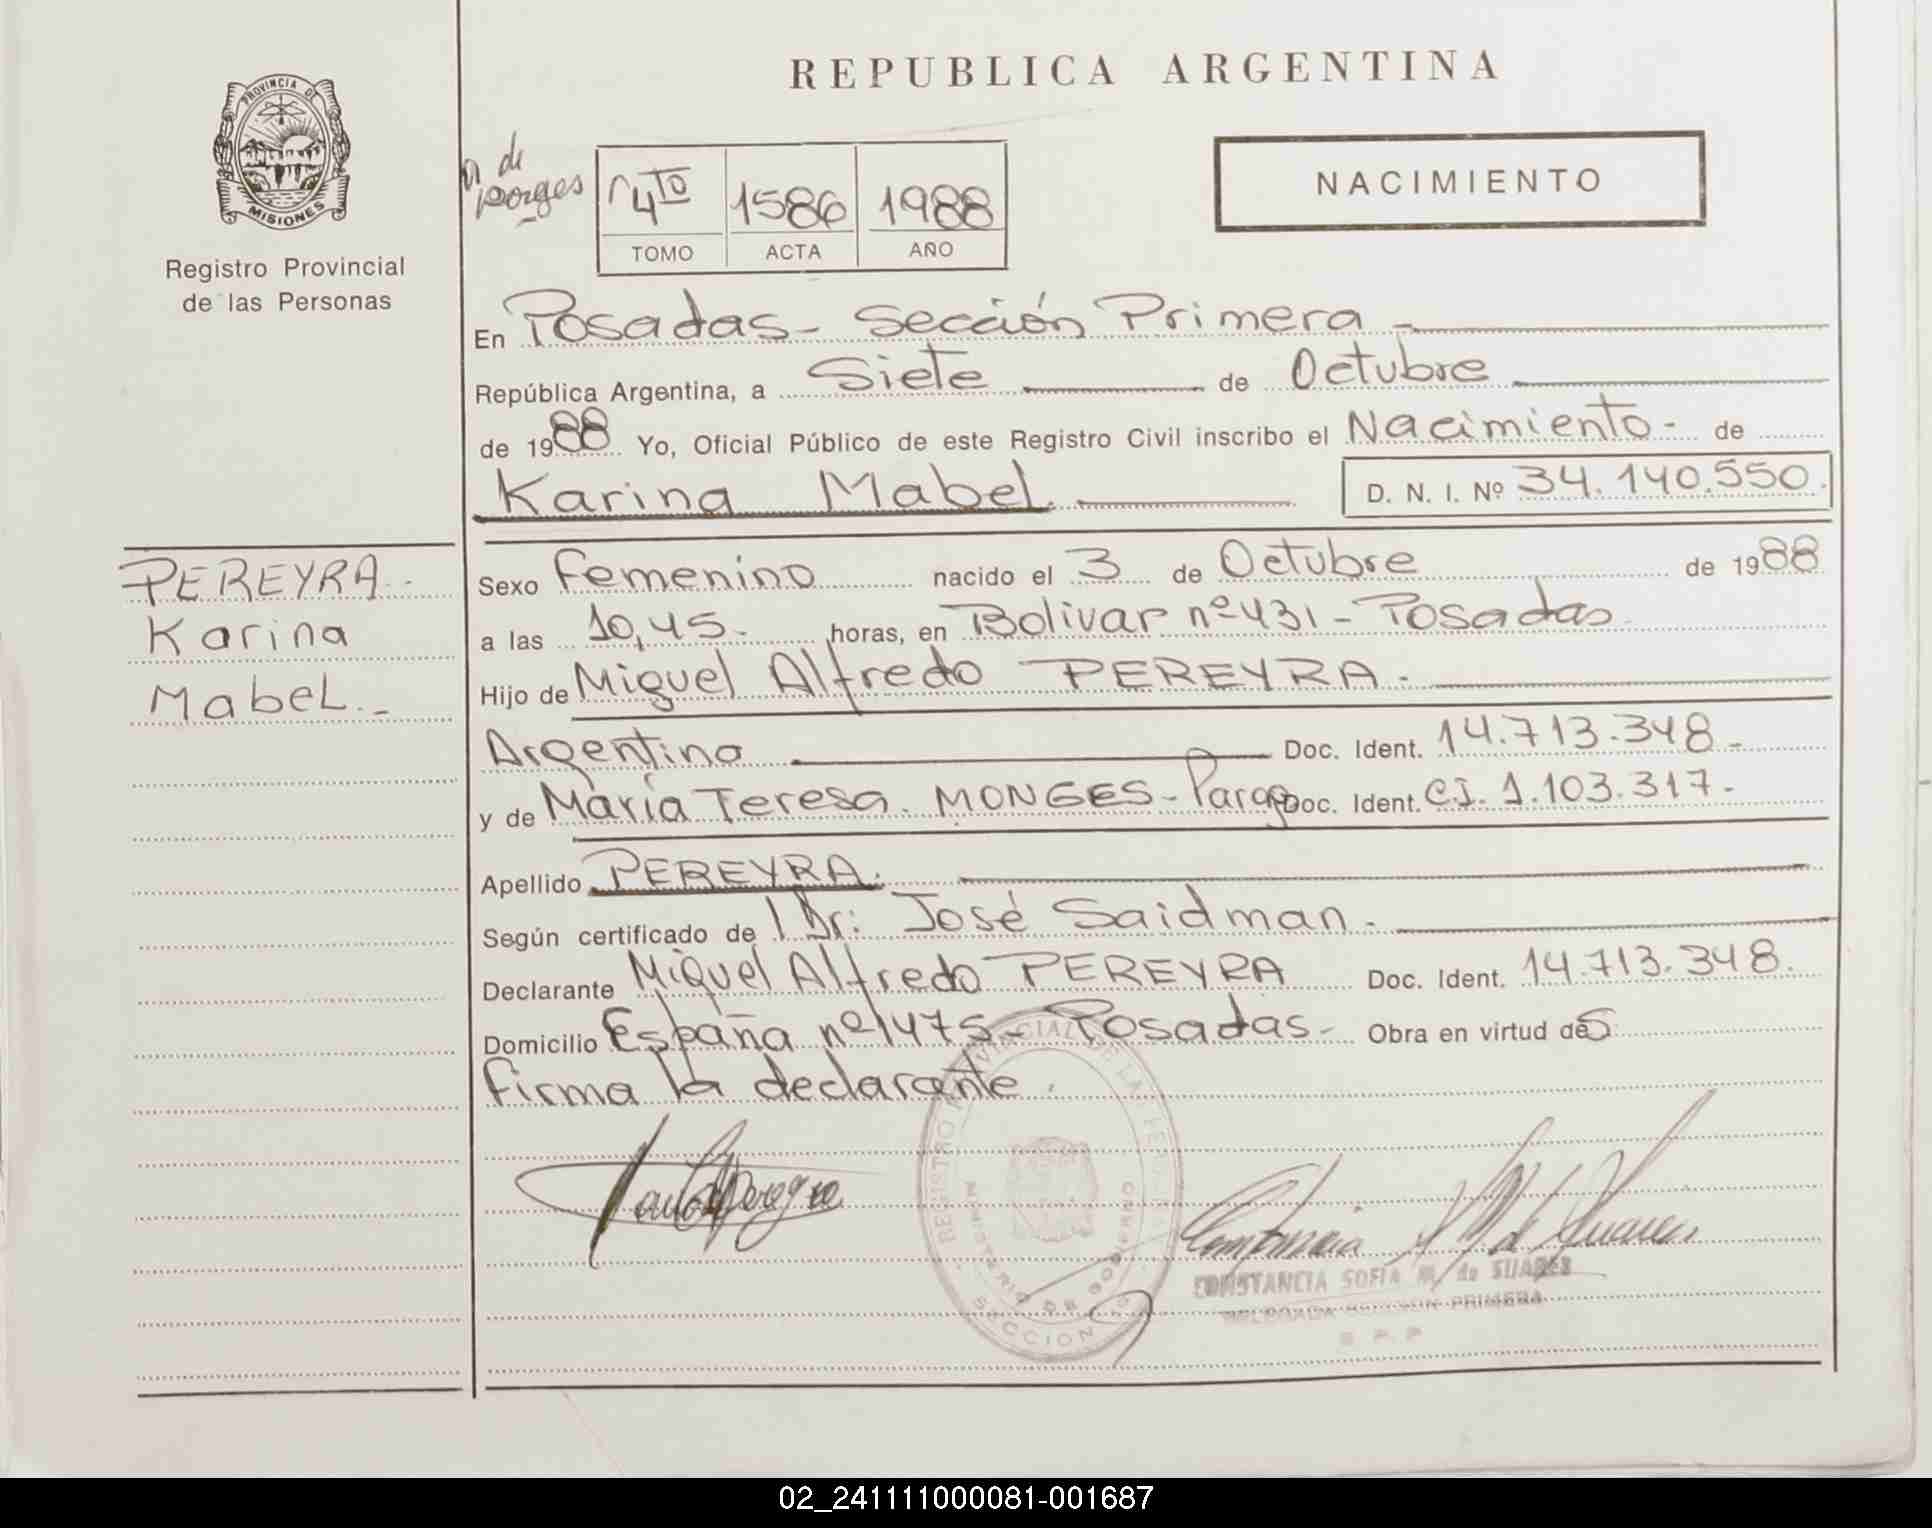 REPUBLICA ARGENTINA
PROVINCIA DE
MISIONES
Registro Provincial
de las Personas
de
4TO 1586 1988
TOMO ACTA AÑO
NACIMIENTO
En Posadas - Sección Primera -
República Argentina, a Siete de Octubre
de 1988 Yo, Oficial Público de este Registro Civil inscribo el Nacimiento - de
Karina Mabel. D. N. I. Nº 34.140.550.
PEREYRA.
Karina
Mabel. -
Sexo Femenino nacido el 3 de Octubre de 1988
a las 10,45. horas, en Bolivar nº 431 - Posadas
Hijo de Miguel Alfredo PEREYRA.
Argentino Doc. Ident. 14.713.348 -
y de María Teresa. MONGES - Parag Doc. Ident. CI. 1.103.317. -
Apellido PEREYRA.
Según certificado de Dr: José Saidman.
Declarante Miguel Alfredo PEREYRA Doc. Ident. 14.713.348.
Domicilio España nº 1475 - Posadas - Obra en virtud de
firma la declarante.
REGISTRO PROVINCIAL DE LAS PERSONAS
MINISTERIO DE GOBIERNO
SECCION 1ª
CONSTANCIA SOFIA M. de SUAREZ
DELEGADA SECCION PRIMERA
R. P. P.
02_241111000081-001687